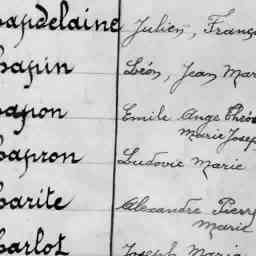 apdelaine Julien, Franç
apin Léon, Jean Mar
apon Emile Ange Théo
Marie Josep
apron Ludovic Marie
arite Alexandre Pierr
Marie
arlot Joseph Marie